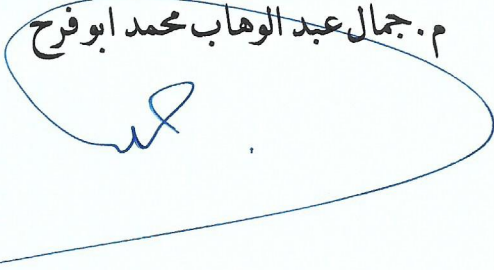 م. جمال عبد الوهاب محمد ابو فرح